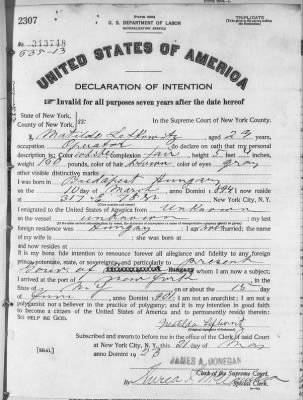 Form 2202
TRIPLICATE
2307
U. S. DEPARTMENT OF LABOR
NATURALIZATION SERVICE
No. 213748
UNITED STATES OF AMERICA
DECLARATION OF INTENTION
Invalid for all purposes seven years after the date hereof
State of New York,
County of New York, ss:
In the Supreme Court of New York County.
I, Matilda Lefkowitz aged 29 years,
occupation Operator do declare on oath that my personal
description is: Color white complexion fair height 5 feet inches,
weight 160 pounds, color of hair brown color of eyes gray
other visible distinctive marks
I was born in Budapest Hungary
on the 10 day of March anno Domini 1894 I now reside
at 317 E St New York City, N. Y.
I emigrated to the United States of America from unknown
on the vessel unknown ; my last
foreign residence was Hungary ; I am not married; the name
of my wife is ; she was born at
and now resides at
It is my bona fide intention to renounce forever all allegiance and fidelity to any foreign
prince, potentate, state, or sovereignty, and particularly to present
of Hungary of whom I am now a subject;
I arrived at the port of New York in the
State of N.Y. on or about the 15 day
of June anno Domini 1901 I am not an anarchist; I am not a
polygamist nor a believer in the practice of polygamy; and it is my intention in good faith
to become a citizen of the United States of America and to permanently reside therein:
SO HELP ME GOD.
Matilda Lefkowitz
Subscribed and sworn to before me in the office of the Clerk of said Court
at New York City, N. Y. this 21 day of Mar
[SEAL] anno Domini 1923
JAMES A. DONEGAN
Clerk of the Supreme Court.
By Special Clerk.